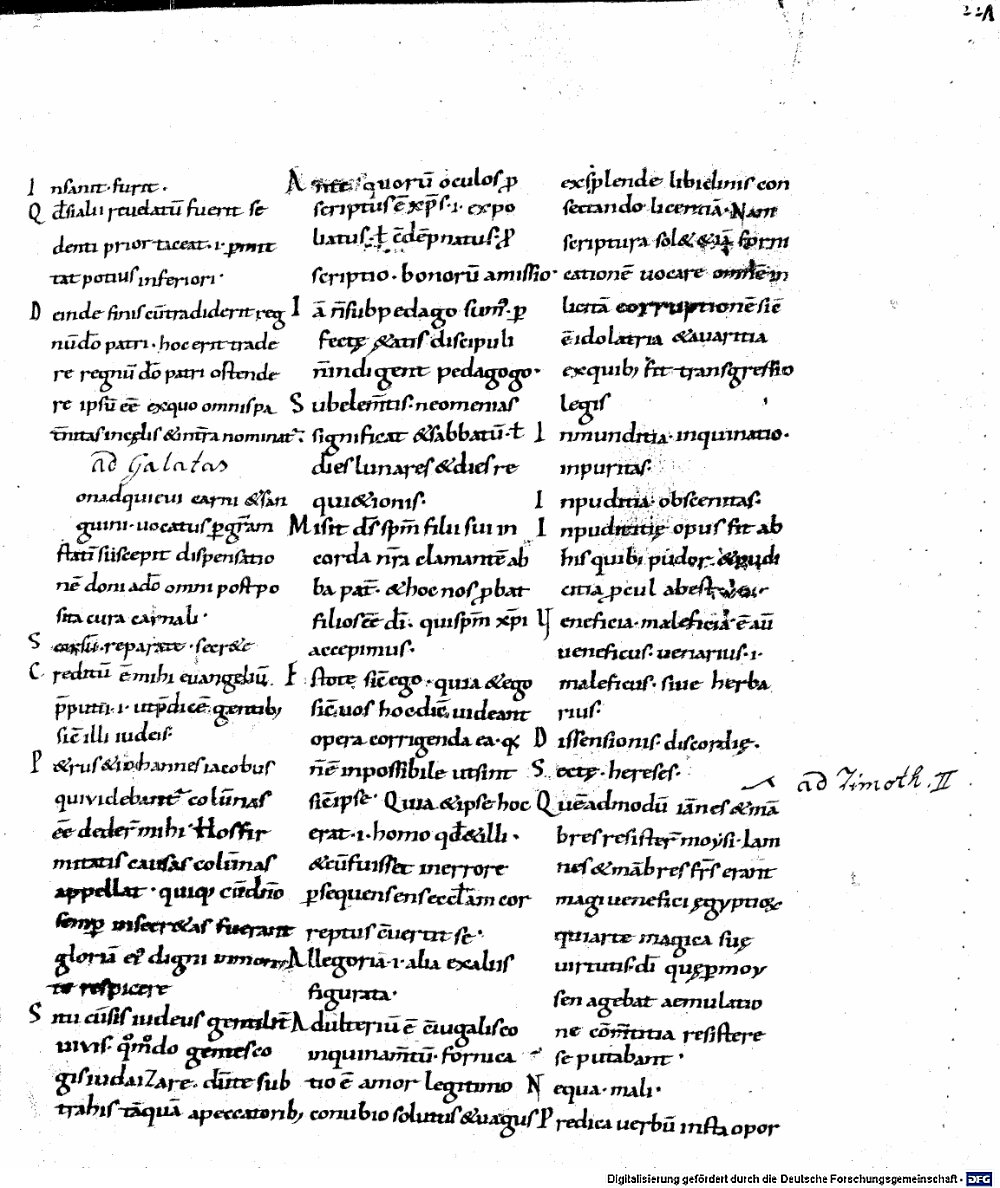 224
I nsanit· furit·
Q d̄si alii reuelatū fuerit se
denti prior taceat·i· p̱mit
tat potius inferiori·
D einde finis cū tradiderit reg
nū do̅ patri· hoc erit trade
re regnū do̅ patri ostende
re ipsū eē ex quo omnis pa
t̄nitas in cęlis & in t̄ra nominat̄·
ad Galatas
on adquieui carni & san
guini· uocatus p̱ gr̄am
statī suscepit dispensatio
nē doni a do̅ omni postpo
sita cura carnali·
S eorsū· reparate· secr&e
C reditū ē mihi euangeliū
p̄putii·i· ut p̄dicē gentib;
sic̄ illi iudeis·
P &rus & iohannes iacobus
qui videbant̄ colūnas
eē deder̄ mihi· Hos fir
mitatis causas colūnas
appellat· quiq; cū dn̄o
semp̱ in secr&as fuerant
gloriā ei᾽ digni
te respicere
S i tu cū sis iudeus gentilit̄
uiuis· qm̊do gentes co
gis iudaizare· dū te sub
trahis tāquā a peccatorib;
A nte quorū oculos p̱
scriptus ē xp̄s·i· expo
liatus· ł cōdēpnatus· p̱
scriptio· bonorū amissio·
I ā n̄ sub pedago sum᾽· p̱
fectę &atis discipuli
n̄ indigent pedagogo·
S ub elem̄tis· neomenias
significat & sabbatū· ł
dies lunares & dies re
qui&ionis·
M isit d̄s sp̄m filii sui in
corda n̄ra clamantē ab
ba pat̄· & hoc nos p̱bat
filios eē di̅· qui sp̄m xp̄i
accepimus·
E stote sic̄ ego· quia & ego
sic̄ uos hoc dic̄ uideant
opera corrigenda ea· q;
n̄ ē inpossibile ut sint
sic̄ ipse· Quia & ipse hoc
erat·i· homo qd̄ & illi·
& cū fuisset in errore
p̱sequens eccl̄am cor
reptus cōuertit se·
A llegoria·i· alia ex aliis
figurata·
A dulteriū ē cōiugalis co
inquinam̄tū· fornica
tio ē amor legitimo
conubio solutus & uagus
explende libidinis con
sectando licentiā· Nam
scriptura sol& & iā forni
cationē uocare omnē in
licitā corruptionē sic̄
ē idolatria & auaritia
ex quib; fit transgressio
legis
I nmunditia· inquinatio·
inpuritas·
I npuditia· obscenitas·
I npuditię opus fit ab
his quib; pudor· & pudi
citia p̱cul abest
V eneficia· maleficia· ē aū
ueneficus· uenarius·i·
maleficus· siue herba
rius·
D issensionis· discordię·
S ectę· hereses·
ad Timoth. II
Q uē admodū iānes & mā
bres resister̄ moysi· Iam
nes & mābres fr̄s erant
magi uenefici ęgyptio
qui arte magica suę
uirtutis di̅ quę p̱ moy
sen agebat aemulatio
ne cōm̄titia resistere
se putabant·
N equa· mali·
P redica uerbū insta opor
Digitalisierung gefördert durch die Deutsche Forschungsgemeinschaft - DFG